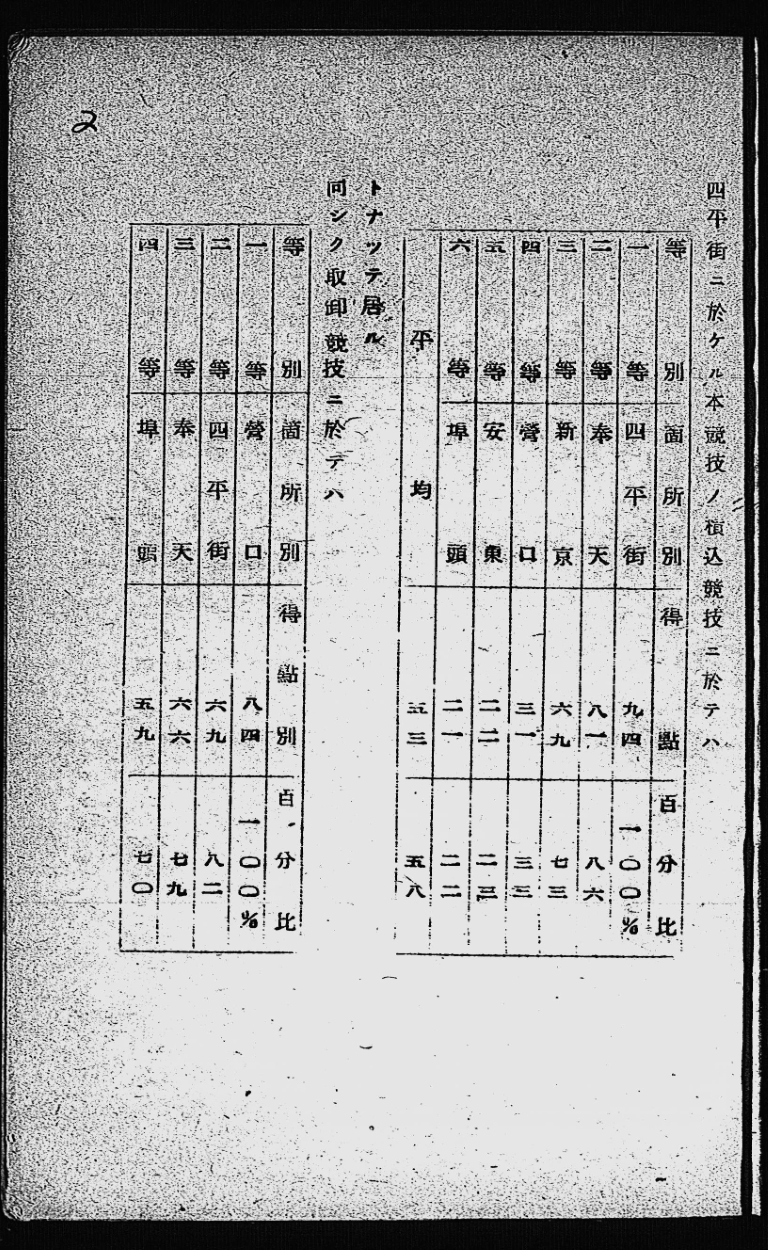 2
四平街ニ於ケル本競技ノ積込競技ニ於テハ
等別 箇所別 得點 百分比
一等 四平街 九四 一〇〇%
二等 奉天 八一 八六
三等 新京 六九 七三
四等 營口 三一 三三
五等 安東 二二 二三
六等 埠頭 二一 二二
平均 五三 五八
トナッテ居ル
同シク取卸競技ニ於テハ
等別 箇所別 得點別 百分比
一等 營口 八四 一〇〇%
二等 四平街 六九 八二
三等 奉天 六六 七九
四等 埠頭 五九 七〇